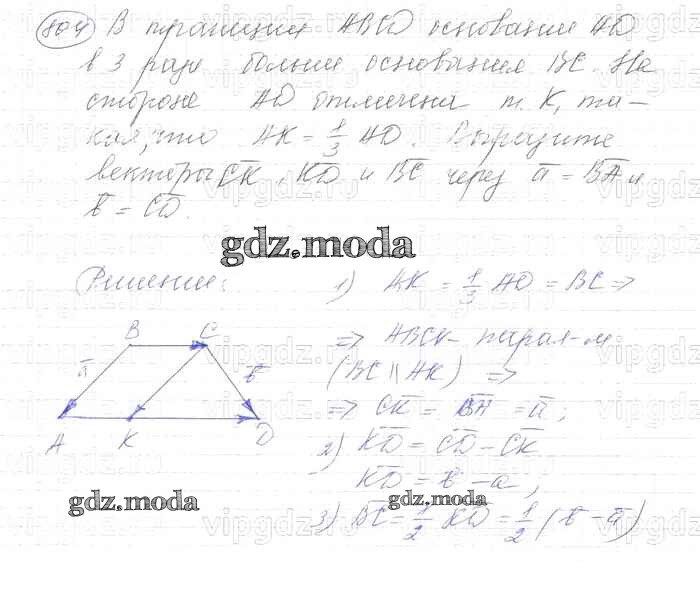 804 В трапеции ABCD основание AD
в 3 раза больше основания BC. На
стороне AD отмечена т. K, та-
кая, что AK = 1/3 AD. Выразите
векторы CK, KD и BC через a = BA и
b = CD.
gdz.moda
Решение:
1) AK = 1/3 AD = BC ⇒
⇒ ABCK - парал-м
(BC || AK) ⇒
⇒ CK = BA = a;
2) KD = CD - CK
KD = b - a;
3) BC = 1/2 KD = 1/2 (b - a)
B C
a b
A K D
gdz.moda
gdz.moda
vipgdz.ru